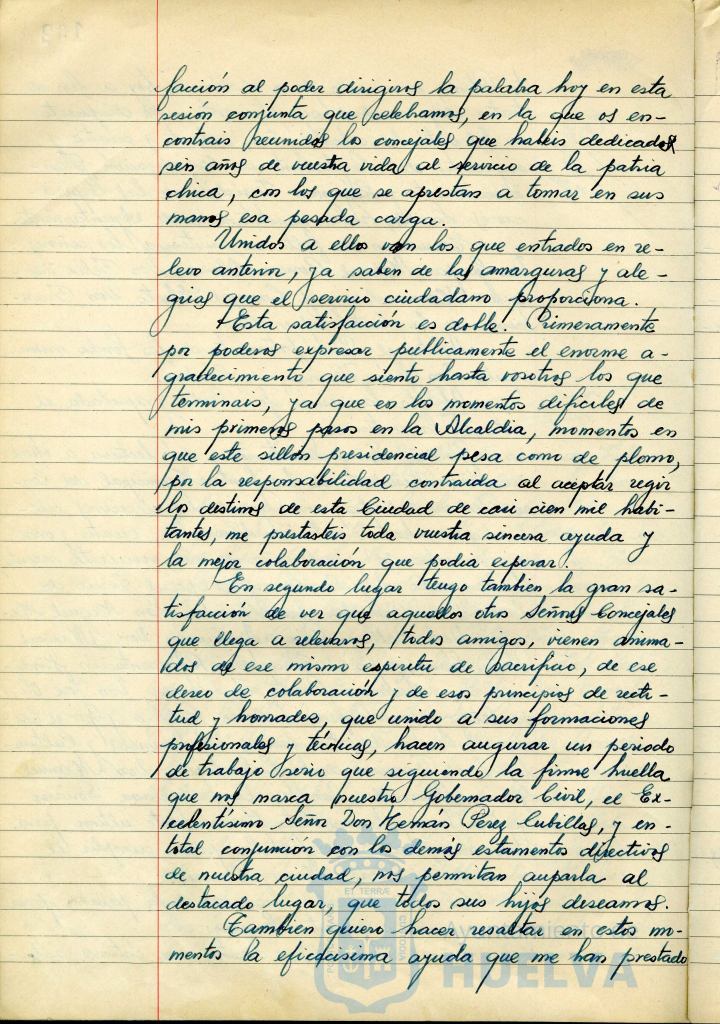 facción al poder dirigiros la palabra hoy en esta
sesión conjunta que celebramos, en la que os en-
contrais reunidos los concejales que habeis dedicados
seis años de vuestra vida al servicio de la patria
chica, con los que se aprestan a tomar en sus
manos esa pesada carga.
Unidos a ellos van los que entrados en re-
levo anterior, ya saben de las amarguras y ale-
grias que el servicio ciudadano proporciona.
Esta satisfacción es doble. Primeramente
por poderos expresar publicamente el enorme a-
gradecimiento que siento hasta vosotros los que
terminais, ya que en los momentos dificiles de
mis primeros pasos en la Alcaldia, momentos en
que este sillon presidencial pesa como de plomo,
por la responsabilidad contraida al aceptar regir
los destinos de esta Ciudad de casi cien mil habi-
tantes, me prestasteis toda vuestra sincera ayuda y
la mejor colaboración que podia esperar.
En segundo lugar tengo tambien la gran sa-
tisfacción de ver que aquellos otros Señores Concejales
que llega a relevaros, todos amigos, vienen anima-
dos de ese mismo espiritu de sacrificio, de ese
deseo de colaboración y de esos principios de recti-
tud y honradez, que unido a sus formaciones
profesionales y técnicas, hacen augurar un periodo
de trabajo serio que siguiendo la firme huella
que nos marca nuestro Gobernador Civil, el Ex-
celentísimo Señor Don Hernán Perez Cubillas, y en-
total conjunción con los demás estamentos directivos
de nuestra ciudad, nos permitan auparla al
destacado lugar, que todos sus hijos deseamos.
Tambien quiero hacer resaltar en estos mo-
mentos la eficacisima ayuda que me han prestado
Ayuntamiento
HUELVA